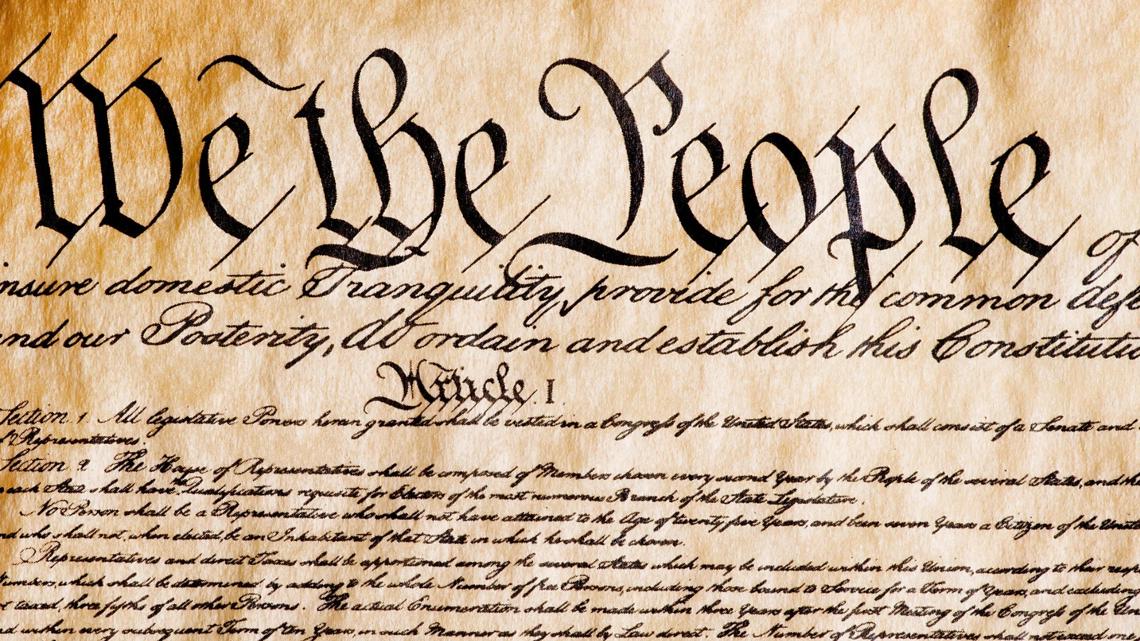 We the People of
insure domestic Tranquility, provide for the common defe
and our Posterity, do ordain and establish this Constitutio
Article. I.
Section. 1. All legislative Powers herein granted shall be vested in a Congress of the United States, which shall consist of a Senate and
of Representatives.
Section. 2. The House of Representatives shall be composed of Members chosen every second Year by the People of the several States, and the
each State shall have the Qualifications requisite for Electors of the most numerous Branch of the State Legislature.
No Person shall be a Representative who shall not have attained to the Age of twenty five Years, and been seven Years a Citizen of the United
and who shall not, when elected, be an Inhabitant of that State in which he shall be chosen.
Representatives and direct Taxes shall be apportioned among the several States which may be included within this Union, according to their respe
Numbers, which shall be determined by adding to the whole Number of free Persons, including those bound to Service for a Term of Years, and excluding
not taxed, three fifths of all other Persons. The actual Enumeration shall be made within three Years after the first Meeting of the Congress of the Uni
and within every subsequent Term of ten Years, in such Manner as they shall by Law direct. The Number of Representatives shall not exceed one